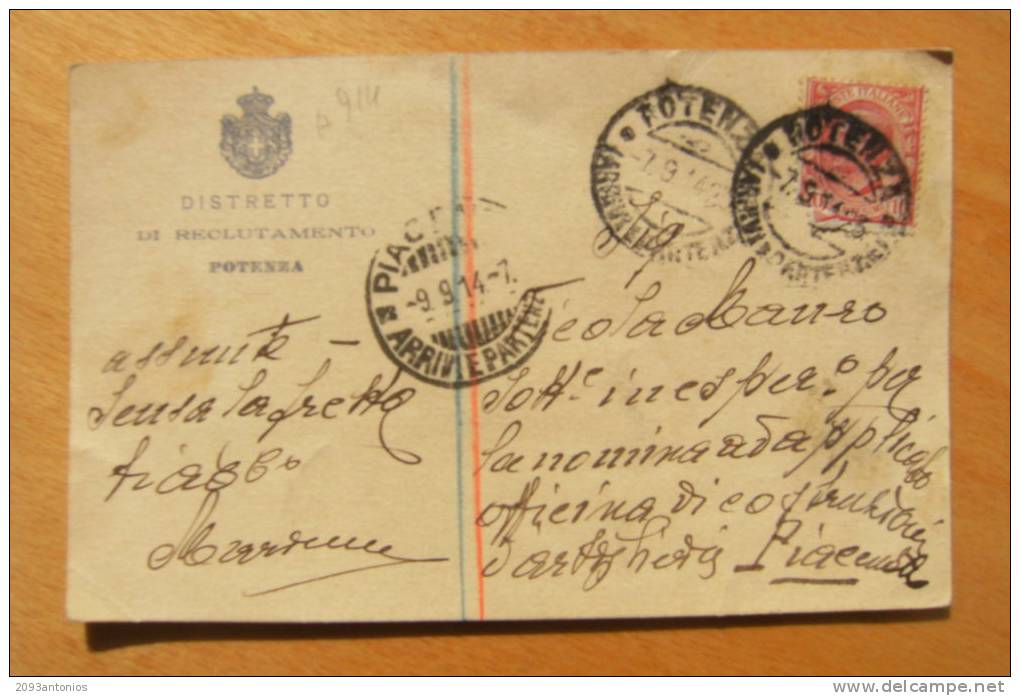 9/11
DISTRETTO
DI RECLUTAMENTO
POTENZA
POTENZA
7.9.14
ARRIVI E PARTENZE
POTENZA
7.9.14
ARRIVI E PARTENZE
POSTE ITALIANE
10
PIACENZA
-9.9.14-7.
ARRIVI E PARTENZ
Sig
Nicola Mauro
Sott.e in esper.o per
la nomina ad applicato
officina di costruzioni
d'artiglieria Piacenza
Senza la fretta
ti abbo
2093antonios
delcampe.net